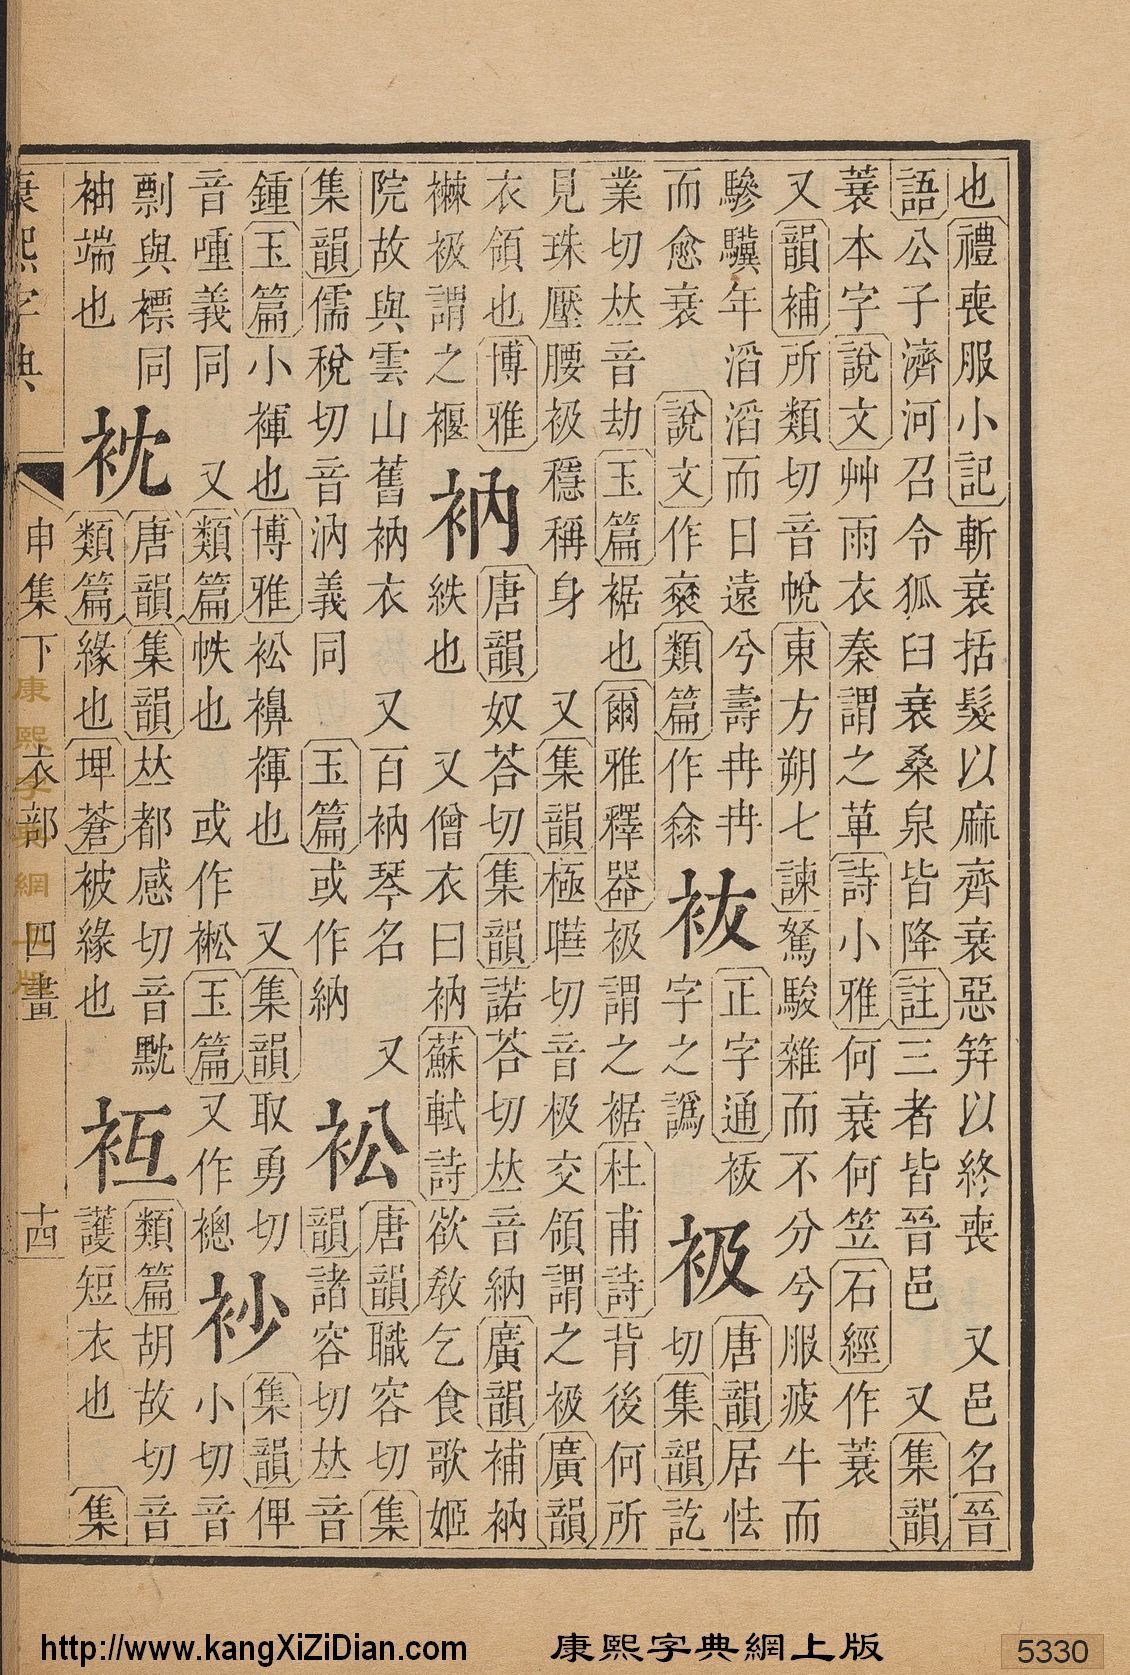 也禮喪服小記斬衰括髮以麻齊衰惡筓以終喪　又邑名晉
語公子濟河召令狐臼衰桑泉皆降註三者皆晉邑　又集韻
蓑本字說文艸雨衣秦謂之萆詩小雅何衰何笠石經作蓑
又韻補所類切音帨東方朔七諫駑駿雜而不分兮服疲牛而
驂驥年滔滔而日遠兮壽冉冉
而愈衰　說文作㐮類篇作䘮
袚
正字通袚
字之譌
衱
唐韻居怯
切集韻訖
業切𠀤音劫玉篇裾也爾雅釋器衱謂之裾杜甫詩背後何所
見珠壓腰衱穩稱身　又集韻極曄切音极交領謂之衱廣韻
衣領也博雅
襋衱謂之褗
衲
唐韻奴荅切集韻諾荅切𠀤音納廣韻補衲
紩也　又僧衣曰衲蘇軾詩欲敎乞食歌姬
院故與雲山舊衲衣　又百衲琴名　又
集韻儒稅切音汭義同　玉篇或作納
衳
唐韻職容切集
韻諸容切𠀤音
鍾玉篇小褌也博雅衳襣褌也　又集韻取勇切
音喠義同　又類篇帙也　或作䘴玉篇又作褈
𧘡
集韻俾
小切音
剽與褾同
袖端也
衴
唐韻集韻𠀤都感切音黕
類篇緣也埤蒼被緣也
枑
類篇胡故切音
護短衣也　集
康熙字典
申集下　衣部　四畫
十四
康熙字典網上版
http://www.kangXiZiDian.com
康熙字典網上版
5330